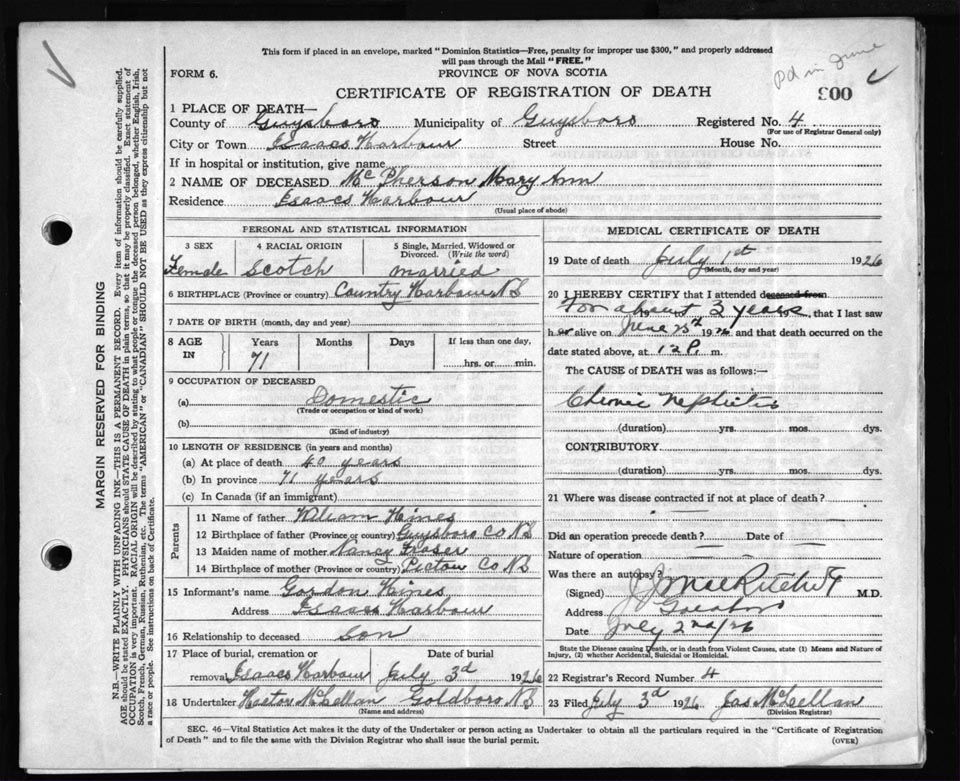 This form if placed in an envelope, marked "Dominion Statistics—Free, penalty for improper use $300," and properly addressed
will pass through the Mail "FREE."
Pd in June
FORM 6.
PROVINCE OF NOVA SCOTIA
CERTIFICATE OF REGISTRATION OF DEATH
300
1 PLACE OF DEATH—
County of Guysboro Municipality of Guysboro Registered No. 4
(For use of Registrar General only)
City or Town Isaacs Harbour Street House No.
If in hospital or institution, give name
2 NAME OF DECEASED McPherson Mary Ann
Residence Isaacs Harbour
(Usual place of abode)
PERSONAL AND STATISTICAL INFORMATION
3 SEX 4 RACIAL ORIGIN 5 Single, Married, Widowed or Divorced. (Write the word)
Female Scotch married
6 BIRTHPLACE (Province or country) Country Harbour NS
7 DATE OF BIRTH (month, day and year)
8 AGE IN Years Months Days If less than one day,
71 hrs. or min.
9 OCCUPATION OF DECEASED
(a) Domestic
(Trade or occupation or kind of work)
(b)
(Kind of industry)
10 LENGTH OF RESIDENCE (in years and months)
(a) At place of death 40 years
(b) In province 71 years
(c) In Canada (if an immigrant)
Parents
11 Name of father William Hines
12 Birthplace of father (Province or country) Guysboro Co NS
13 Maiden name of mother Nancy Fraser
14 Birthplace of mother (Province or country) Pictou Co NS
15 Informant's name Gordon Hines
Address Isaacs Harbour
16 Relationship to deceased Son
17 Place of burial, cremation or Date of burial
removal Isaacs Harbour July 3d 1926
18 Undertaker Hector McLellan Goldboro NS
(Name and address)
MEDICAL CERTIFICATE OF DEATH
19 Date of death July 1st 1926
(Month, day and year)
20 I HEREBY CERTIFY that I attended deceased from
For about 3 years, that I last saw
h er alive on June 25th 1926, and that death occurred on
date stated above, at 12 P. m.
The CAUSE of DEATH was as follows:—
Chronic Nephritis
(duration) yrs. mos. dys.
CONTRIBUTORY
(duration) yrs. mos. dys.
21 Where was disease contracted if not at place of death?
Did an operation precede death? Date of
Nature of operation
Was there an autopsy?
(Signed) M.D.
Address Goldboro
Date July 2nd/26
State the Disease causing Death, or in death from Violent Causes, state (1) Means and Nature of
Injury, (2) whether Accidental, Suicidal or Homicidal.
22 Registrar's Record Number 4
23 Filed July 3d 1926 Jas McLellan
(Division Registrar)
SEC. 46—Vital Statistics Act makes it the duty of the Undertaker or person acting as Undertaker to obtain all the particulars required in the "Certificate of Registration
of Death" and to file the same with the Division Registrar who shall issue the burial permit.
(OVER)
MARGIN RESERVED FOR BINDING
N.B.—WRITE PLAINLY WITH UNFADING INK—THIS IS A PERMANENT RECORD. Every item of information should be carefully supplied.
AGE should be stated EXACTLY. PHYSICIANS should STATE CAUSE OF DEATH in plain terms, so that it may be properly classified. Exact statement of
OCCUPATION is very important. RACIAL ORIGIN will be described by stating to what people or tongue the deceased person belonged, whether English, Irish,
Scotch, French, German, Russian, Ruthenian, etc. The terms "AMERICAN" or "CANADIAN" SHOULD NOT BE USED as they express citizenship but not
a race or people. See instructions on back of Certificate.